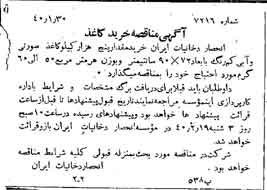 شماره ۷۲۱۶ ۴۰/۱/۳۰
آگهی مناقصه خرید کاغذ
انحصار دخانیات ایران خرید مقدار پنج هزار کیلو کاغذ صورتی
و آبی کم رنگ بابعاد ۷۲×۹۰ سانتیمتر و بوزن هر متر مربع ۵۰ الی ۶۰
گرم مورد احتیاج خود را بمناقصه میگذارد
داوطلبان باید قبلا برای دریافت برگ مشخصات و شرایط باداره
کارپردازی این مؤسسه مراجعه نمایند تاریخ قبول پیشنهادها تا قبل از ساعت
پیشنهادها خواهد بود و پیشنهادهای رسیده در ساعت ۱۰ صبح
روز ۳ شنبه ۴۰/۲/۱۹ در مؤسسه انحصار دخانیات ایران باز و قرائت
خواهد شد
شرکت در مناقصه مورد بحث بمنزله قبولی کلیه شرایط مناقصه
خواهد بود . انحصار دخانیات ایران
پ۵۳۸ ۲-۲